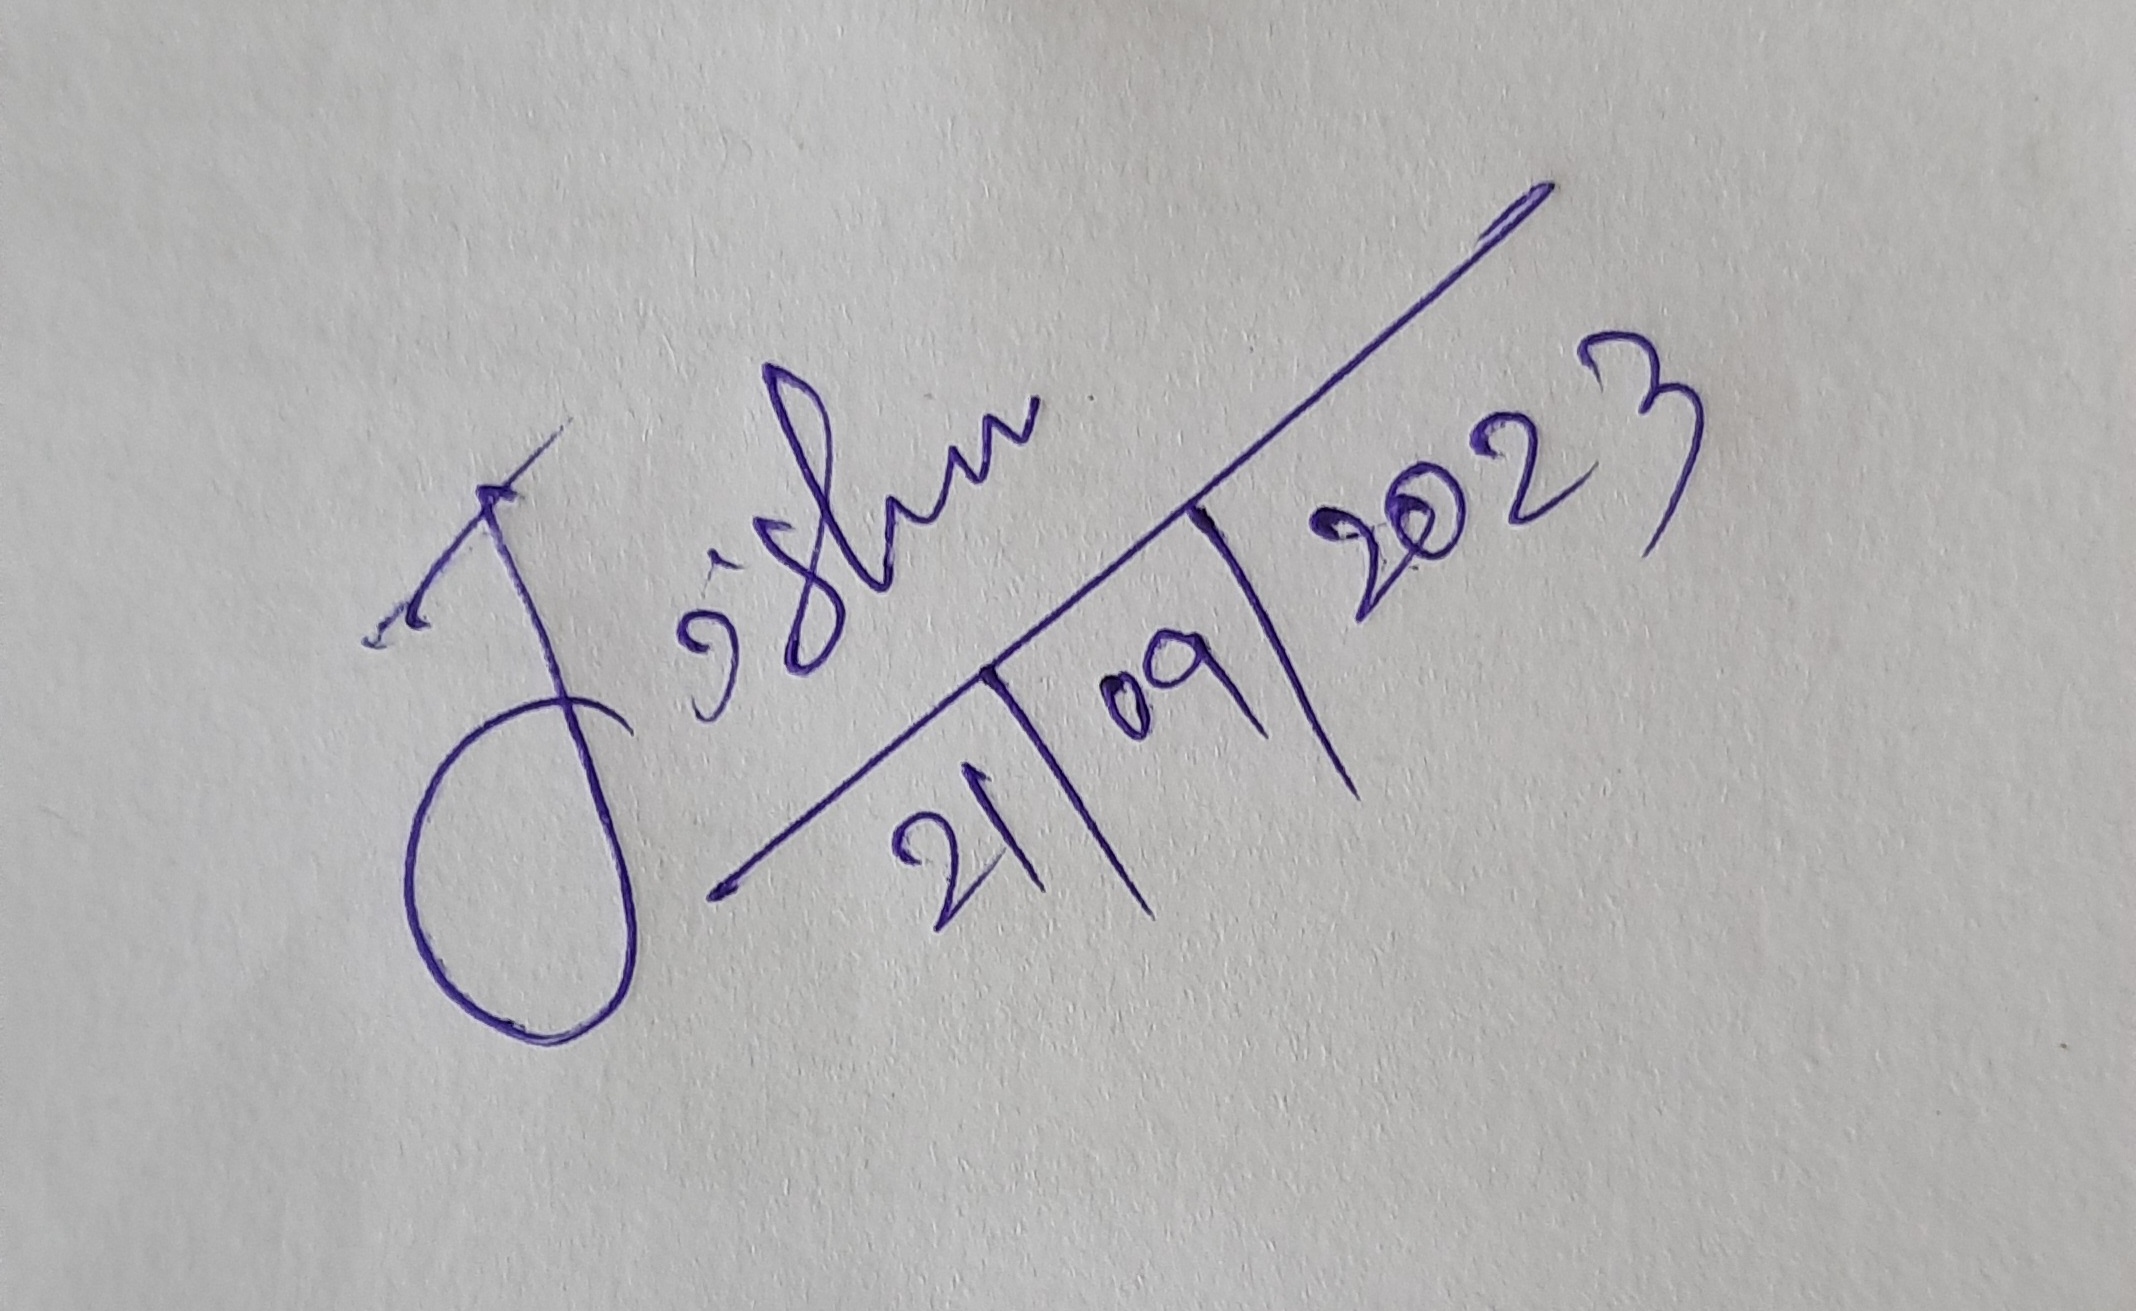 Jishu
21/09/2023